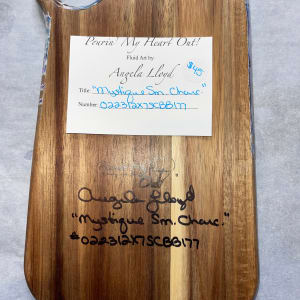 Pourin' My Heart Out!
Fluid Art by
Angela Lloyd
$45
Title: "Mystique Sm. Charc."
Number: 022312X7SCBB177
Angela Lloyd
"Mystique Sm. Charc."
#022312X7SCBB177